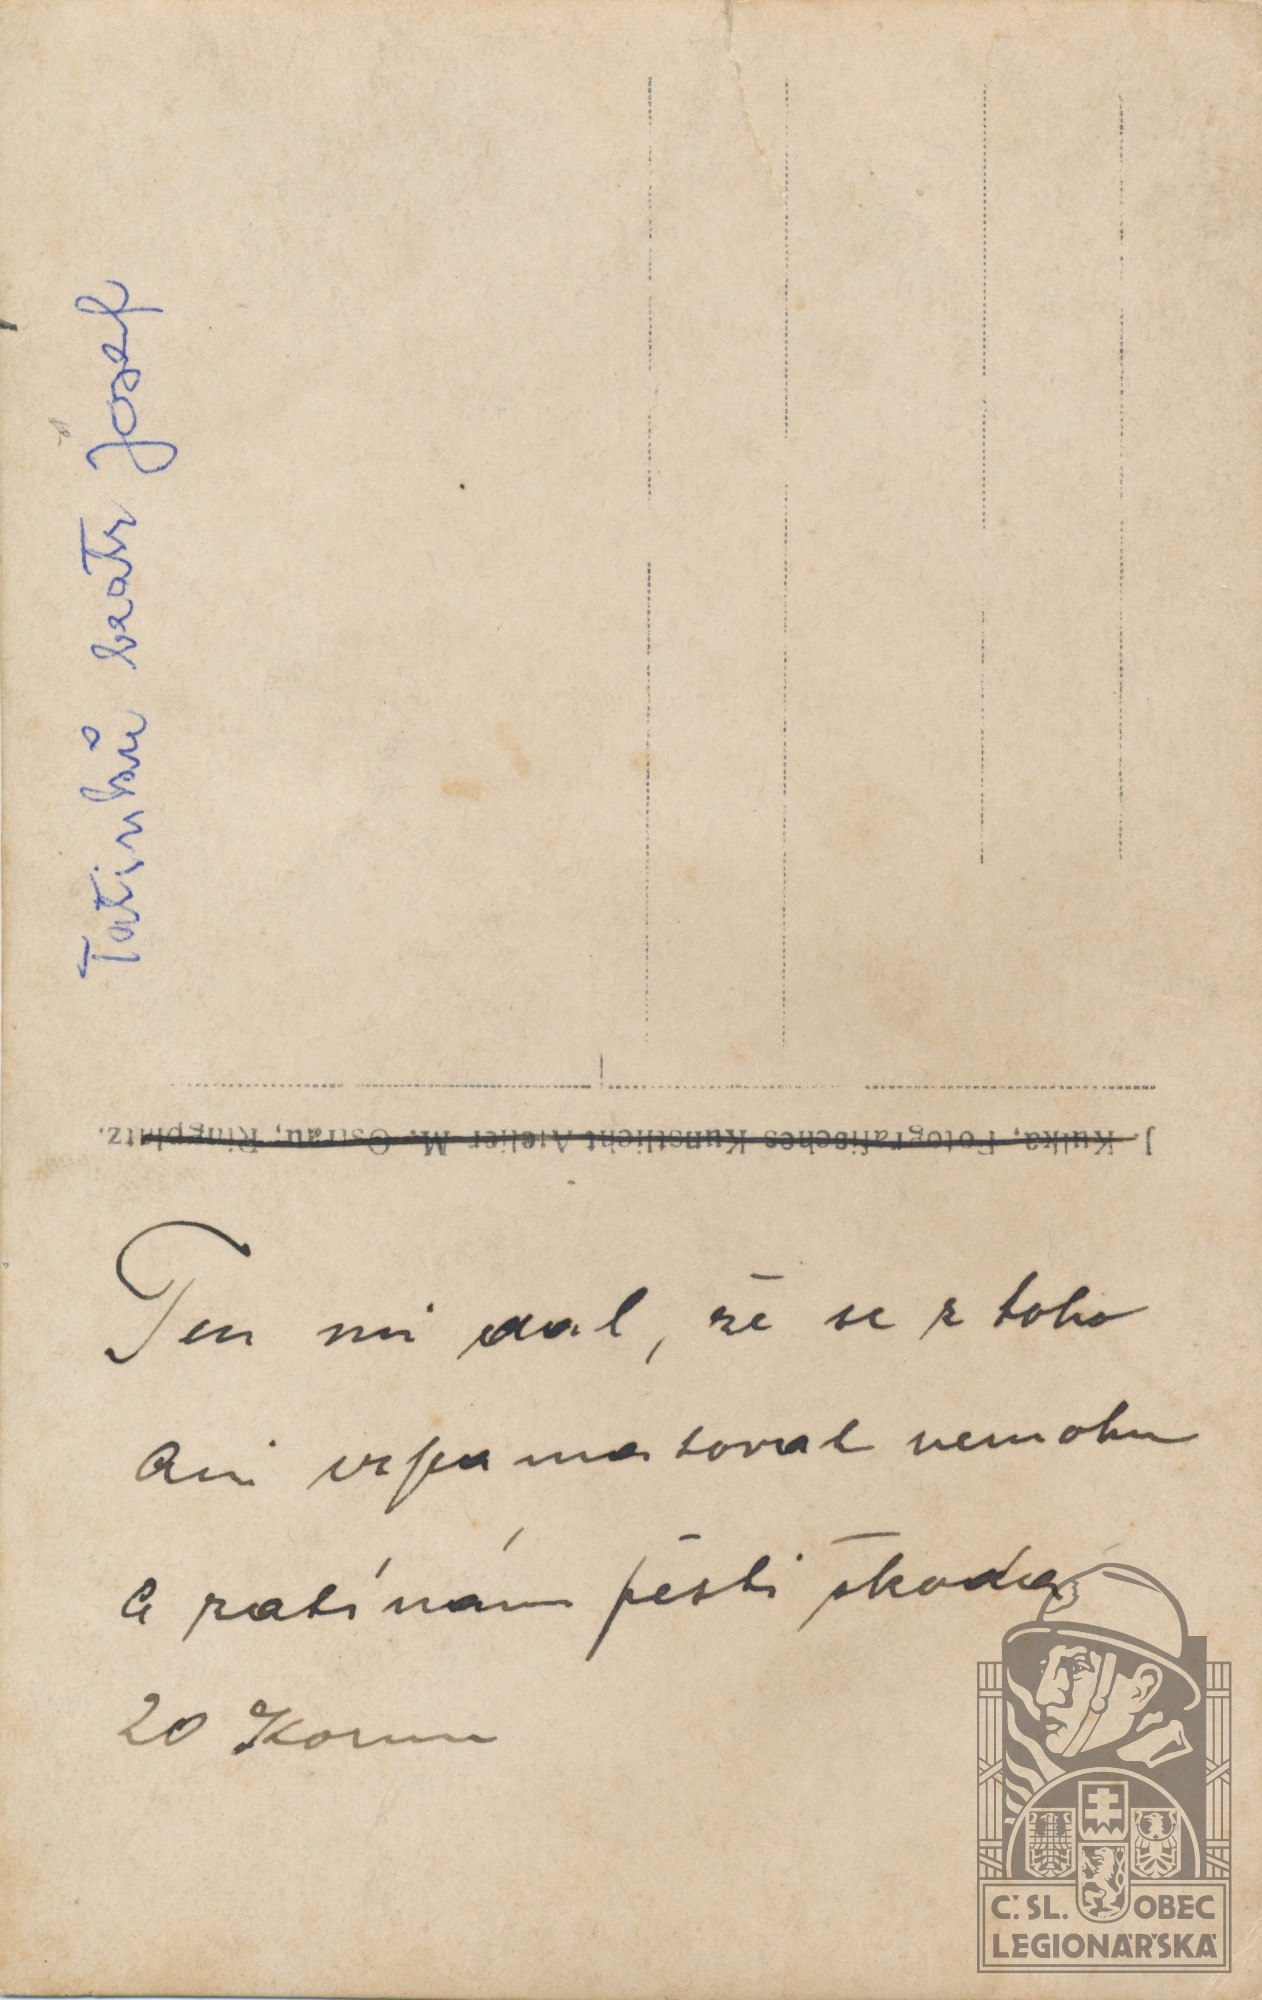 Tatinků bratr Josef
J. Kulka, Fotografisches Kunstlicht Atelier M. Ostrau, Ringplatz.
Ten mi dal, že se z toho
ani vzpamatovat nemohu
a zatínám pěsti škoda
20 Korun
Č. SL. OBEC
LEGIONÁŘSKÁ